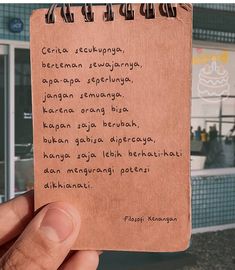 Cerita secukupnya,
berteman sewajarnya,
apa-apa seperlunya,
jangan semuanya.
karena orang bisa
kapan saja berubah,
bukan gabisa dipercaya,
hanya saja lebih berhati-hati
dan mengurangi potensi
dikhianati.
-Filosofi Kenangan